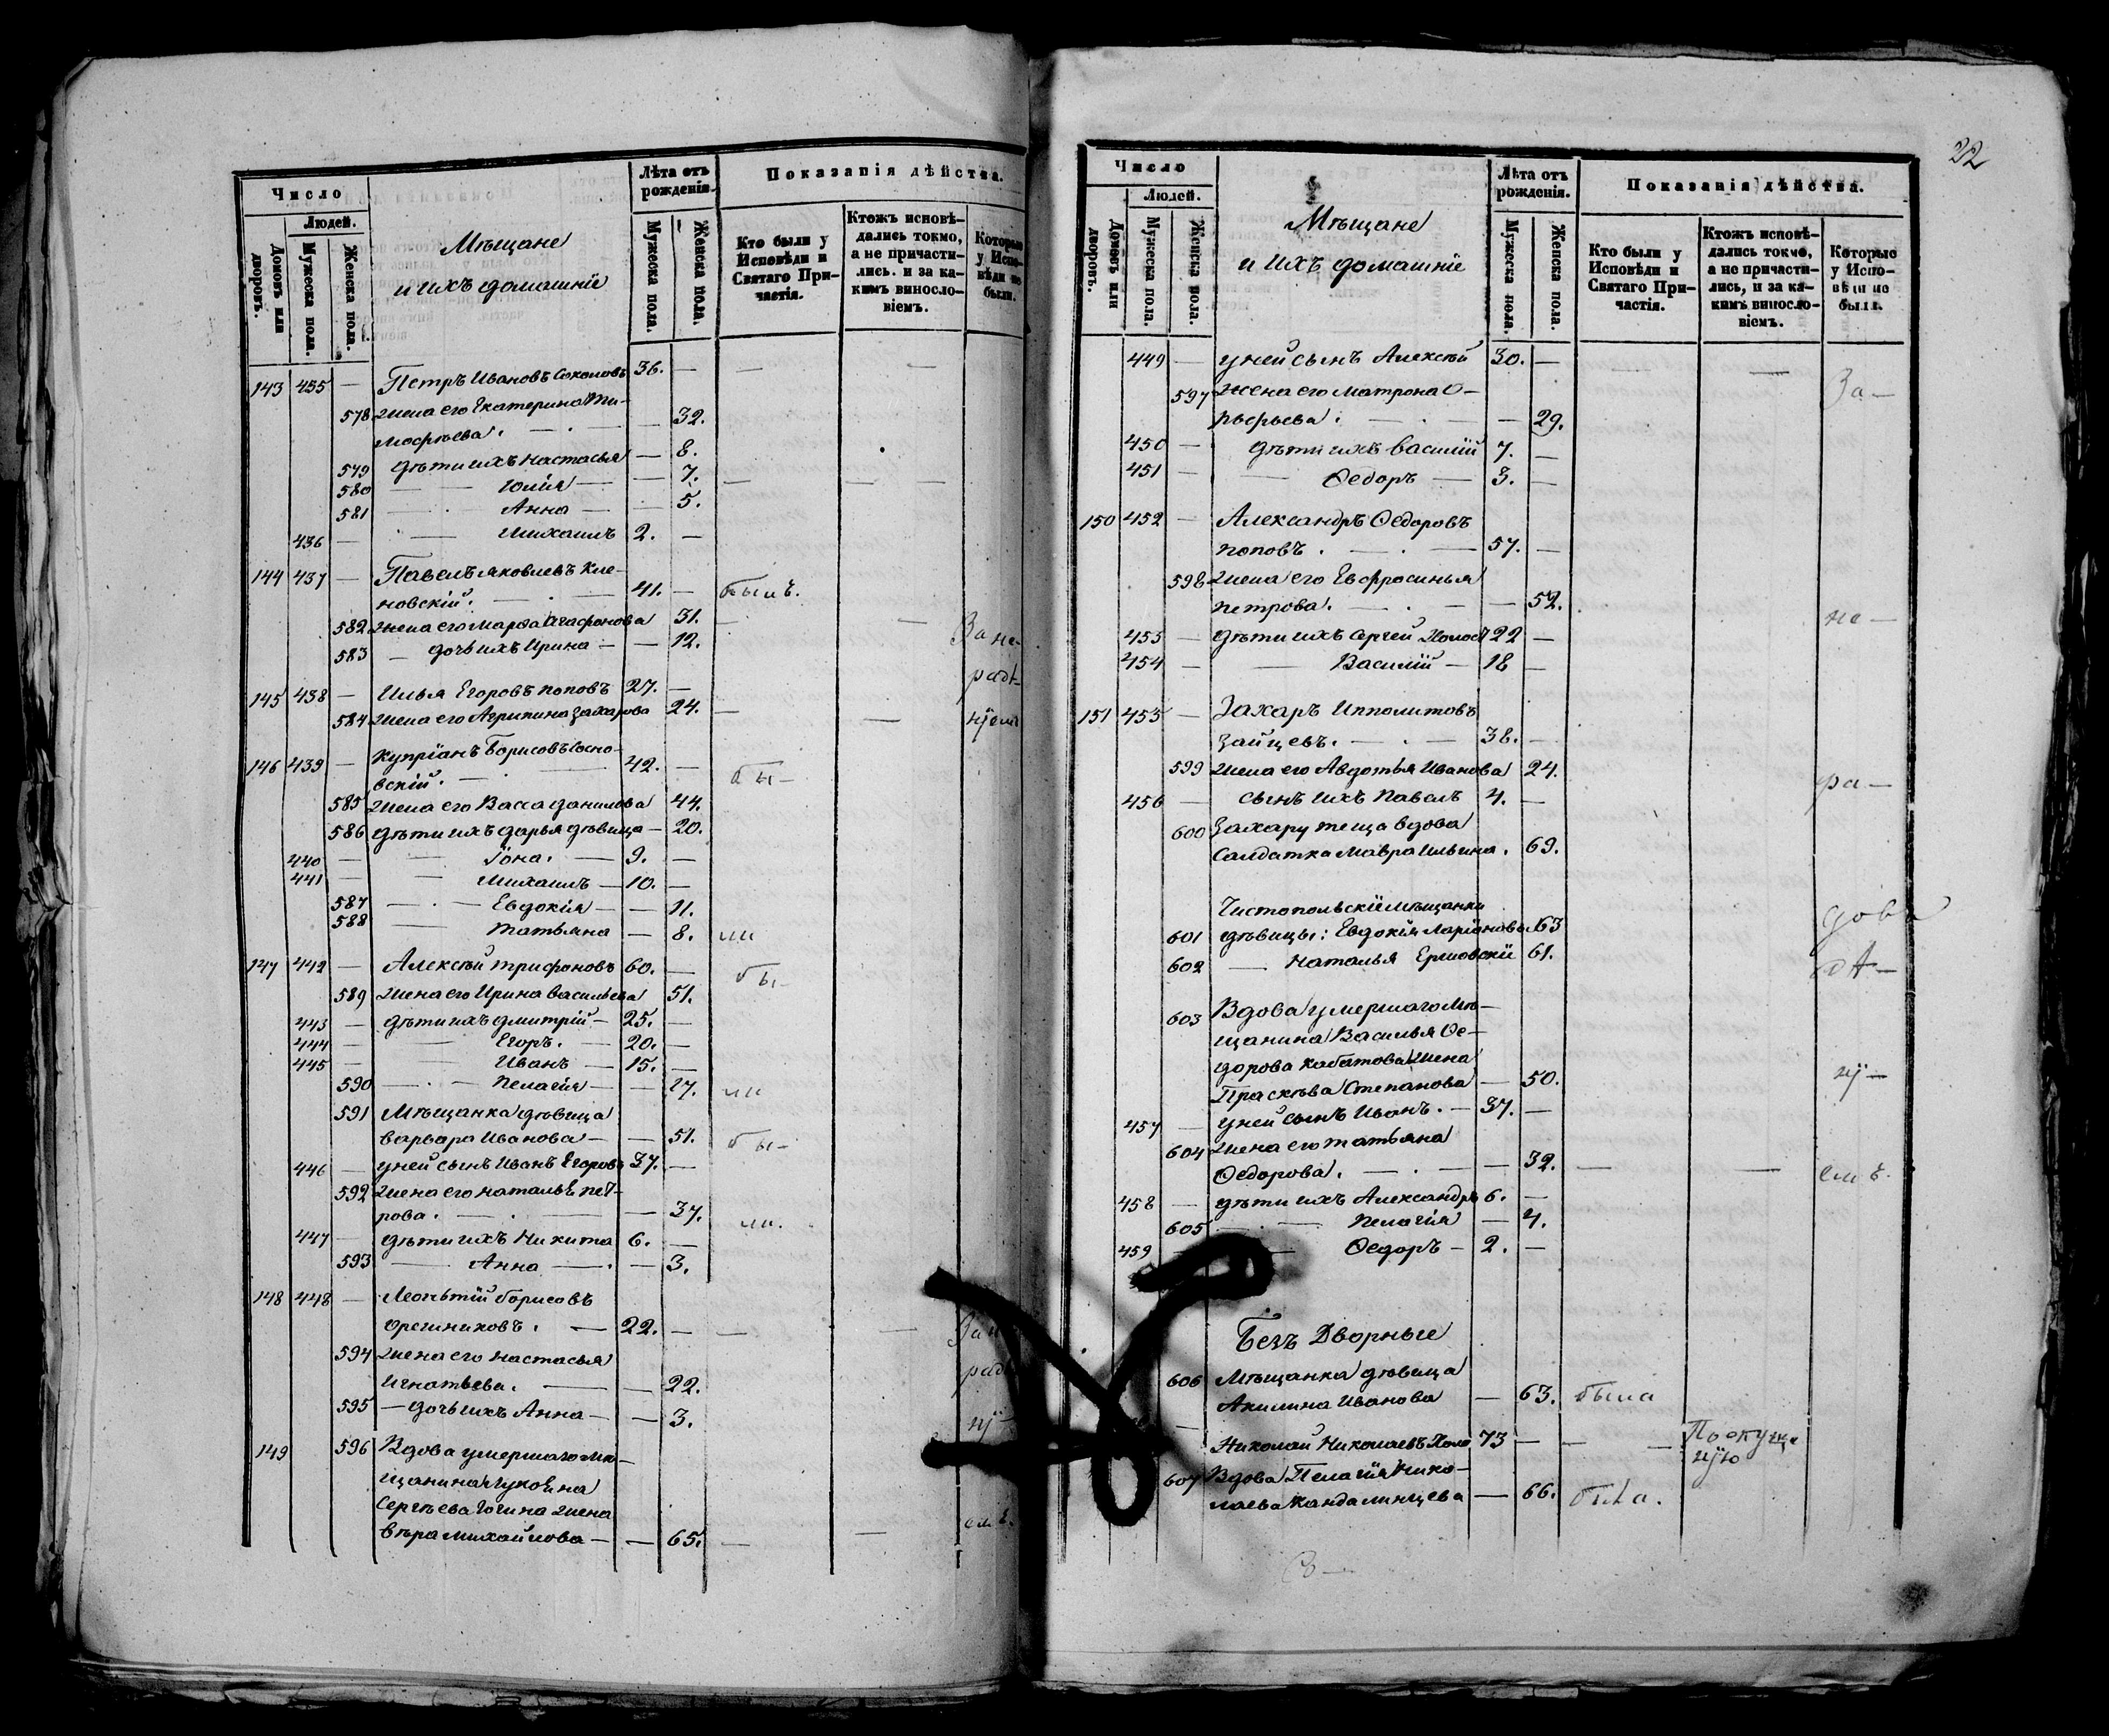 Число
Людей.
Домовъ или дворовъ.
Мужеска пола.
Женска пола.
Мѣщане
и ихъ домашніе
Лѣта отъ рожденія.
Мужеска пола.
Женска пола.
Показанія дѣйства.
Кто были у Исповѣди и Святаго Причастія.
Ктожъ исповѣ-
дались токмо,
а не причасти-
лись. и за ка-
кимъ виносло-
віемъ.
Которые
у Испо-
вѣди не
были.
143 435 — Петръ Ивановъ Соколовъ 36. — — —
578 жена его Екатерина Ти-
мофѣева. — 32.
579 дѣти ихъ Настасья — 8.
580 — Юлія — 7. — — —
581 — Анна — 5.
436 — Михаилъ 2. —
144 437 — Павелъ Яковлевъ Кле-
новскій. 41. — былъ.
582 жена его Марѳа Агафонова 31. — —
583 — дочь ихъ Ирина — — 12. За не-
рад-
145 438 — Илья Егоровъ Поповъ 27. —
584 жена его Агрипина Захарова 24. — — ніемъ
146 439 — Купріанъ Борисовъ Сосно-
вскій. 42. — бы-
585 жена его Васса Данилова 44.
586 дѣти ихъ Дарья дѣвица — 20.
440 — Іона. — 9. —
441 — Михаилъ — 10. —
587 — Евдокія — — 11.
588 Татьяна — 8. ли
147 442 — Алексѣй Трифоновъ 60. — бы-
589 жена его Ирина Васильева 51.
443 — дѣти ихъ Дмитрій — 25. —
444 — Егоръ. — 20. —
445 — Иванъ — 15. —
590 — Пелагія — — 17. ли
591 Мѣщанка дѣвица
Варвара Иванова — — 51. бы-
446 — у ней сынъ Иванъ Егоровъ 37. —
592 жена его Наталья Пет-
рова. — 37. ли.
447 — дѣти ихъ Никита 6. —
593 — Анна — — 3.
148 448 — Леонтій Борисовъ
Орешниковъ. — 22. — — —
594 жена его Настасья
Игнатьева. — — 22.
595 — дочь ихъ Анна — — 3. ні-
149 596 Вдова умершаго мѣ-
щанина
Сергѣева жена
Вѣра Михайлова — — 65. — — емъ.
22
Число
Людей.
Домовъ или дворовъ.
Мужеска пола.
Женска пола.
Мѣщане
и ихъ домашніе
Лѣта отъ рожденія.
Мужеска пола.
Женска пола.
Показанія дѣйства.
Кто были у Исповѣди и Святаго Причастія.
Ктожъ исповѣ-
дались токмо,
а не причасти-
лись, и за ка-
кимъ виносло-
віемъ.
Которые
у Испо-
вѣди не
были.
449 — у ней сынъ Алексѣй 30. — — — За-
597 жена его Матрона О-
— 29.
450 — дѣти ихъ Василій 7. —
451 — Ѳедоръ — 3. —
150 452 — Александръ Ѳедоровъ
Поповъ. — 57. —
598 жена его Евфросинья
Петрова. — — 52. не-
453 — дѣти ихъ Сергей Холост 22 —
454 — Василій — 18 —
151 455 — Захаръ Ипполитовъ
Зайцевъ. — 38. —
599 жена его Авдотья Иванова 24. ра-
456 — сынъ ихъ Павелъ 4. —
600 Захару теща вдова
Салдатка Мавра Ильина. 69.
Чистопольскіе мѣщанки
601 дѣвицы: Евдокія Ларіонова 63
602 — Наталья 61.
603 Вдова умершаго мѣ-
щанина Василья Ѳе-
дорова Кабатова жена
Прасковья Степанова — 50. ні-
457 — у ней сынъ Иванъ. — 37. —
604 жена его Татьяна
Ѳедорова. — — 32. — — емъ.
458 — дѣти ихъ Александръ 6. —
605 — Пелагія — 4.
459 — Ѳедоръ — 2. —
Безъ Дворные
606 Мѣщанка дѣвица
Акилина Иванова — 63. была
— Николай Николаевъ 73 — — —
607 Вдова Пелагія Нико-
лаева Кандалинцева — 66. была.